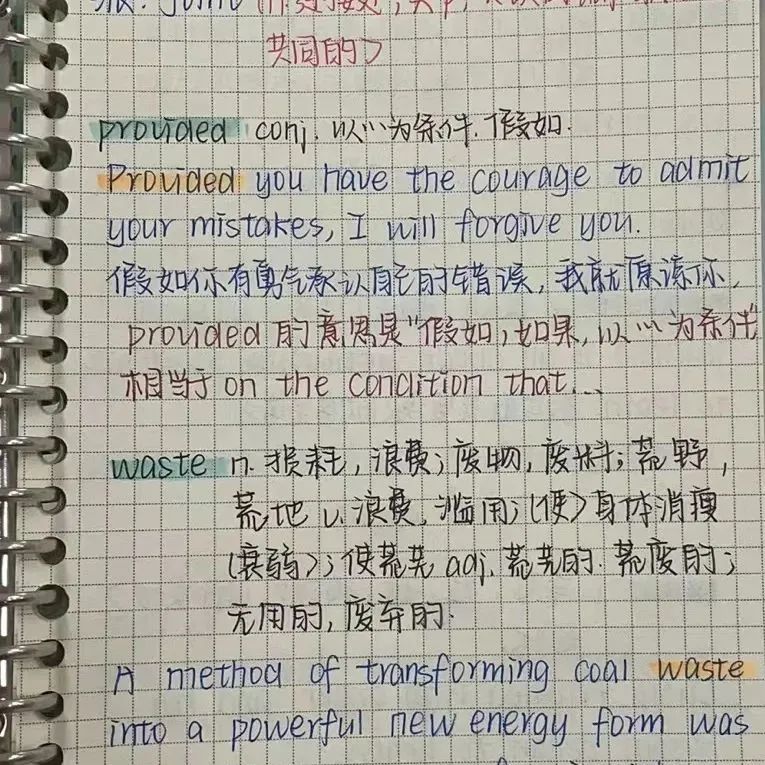 共同的)
provided conj. 以…为条件. 假如.
Provided you have the courage to admit
your mistakes, I will forgive you.
假如你有勇气承认自己的错误, 我就原谅你.
provided 的意思是"假如, 如果, 以…为条件"
相当于 on the condition that...
waste n. 损耗, 浪费; 废物, 废料; 荒野,
荒地 v. 浪费, 滥用; (使)身体消瘦
(衰弱); 使荒芜 adj. 荒芜的. 荒废的;
无用的, 废弃的.
A method of transforming coal waste
into a powerful new energy form was